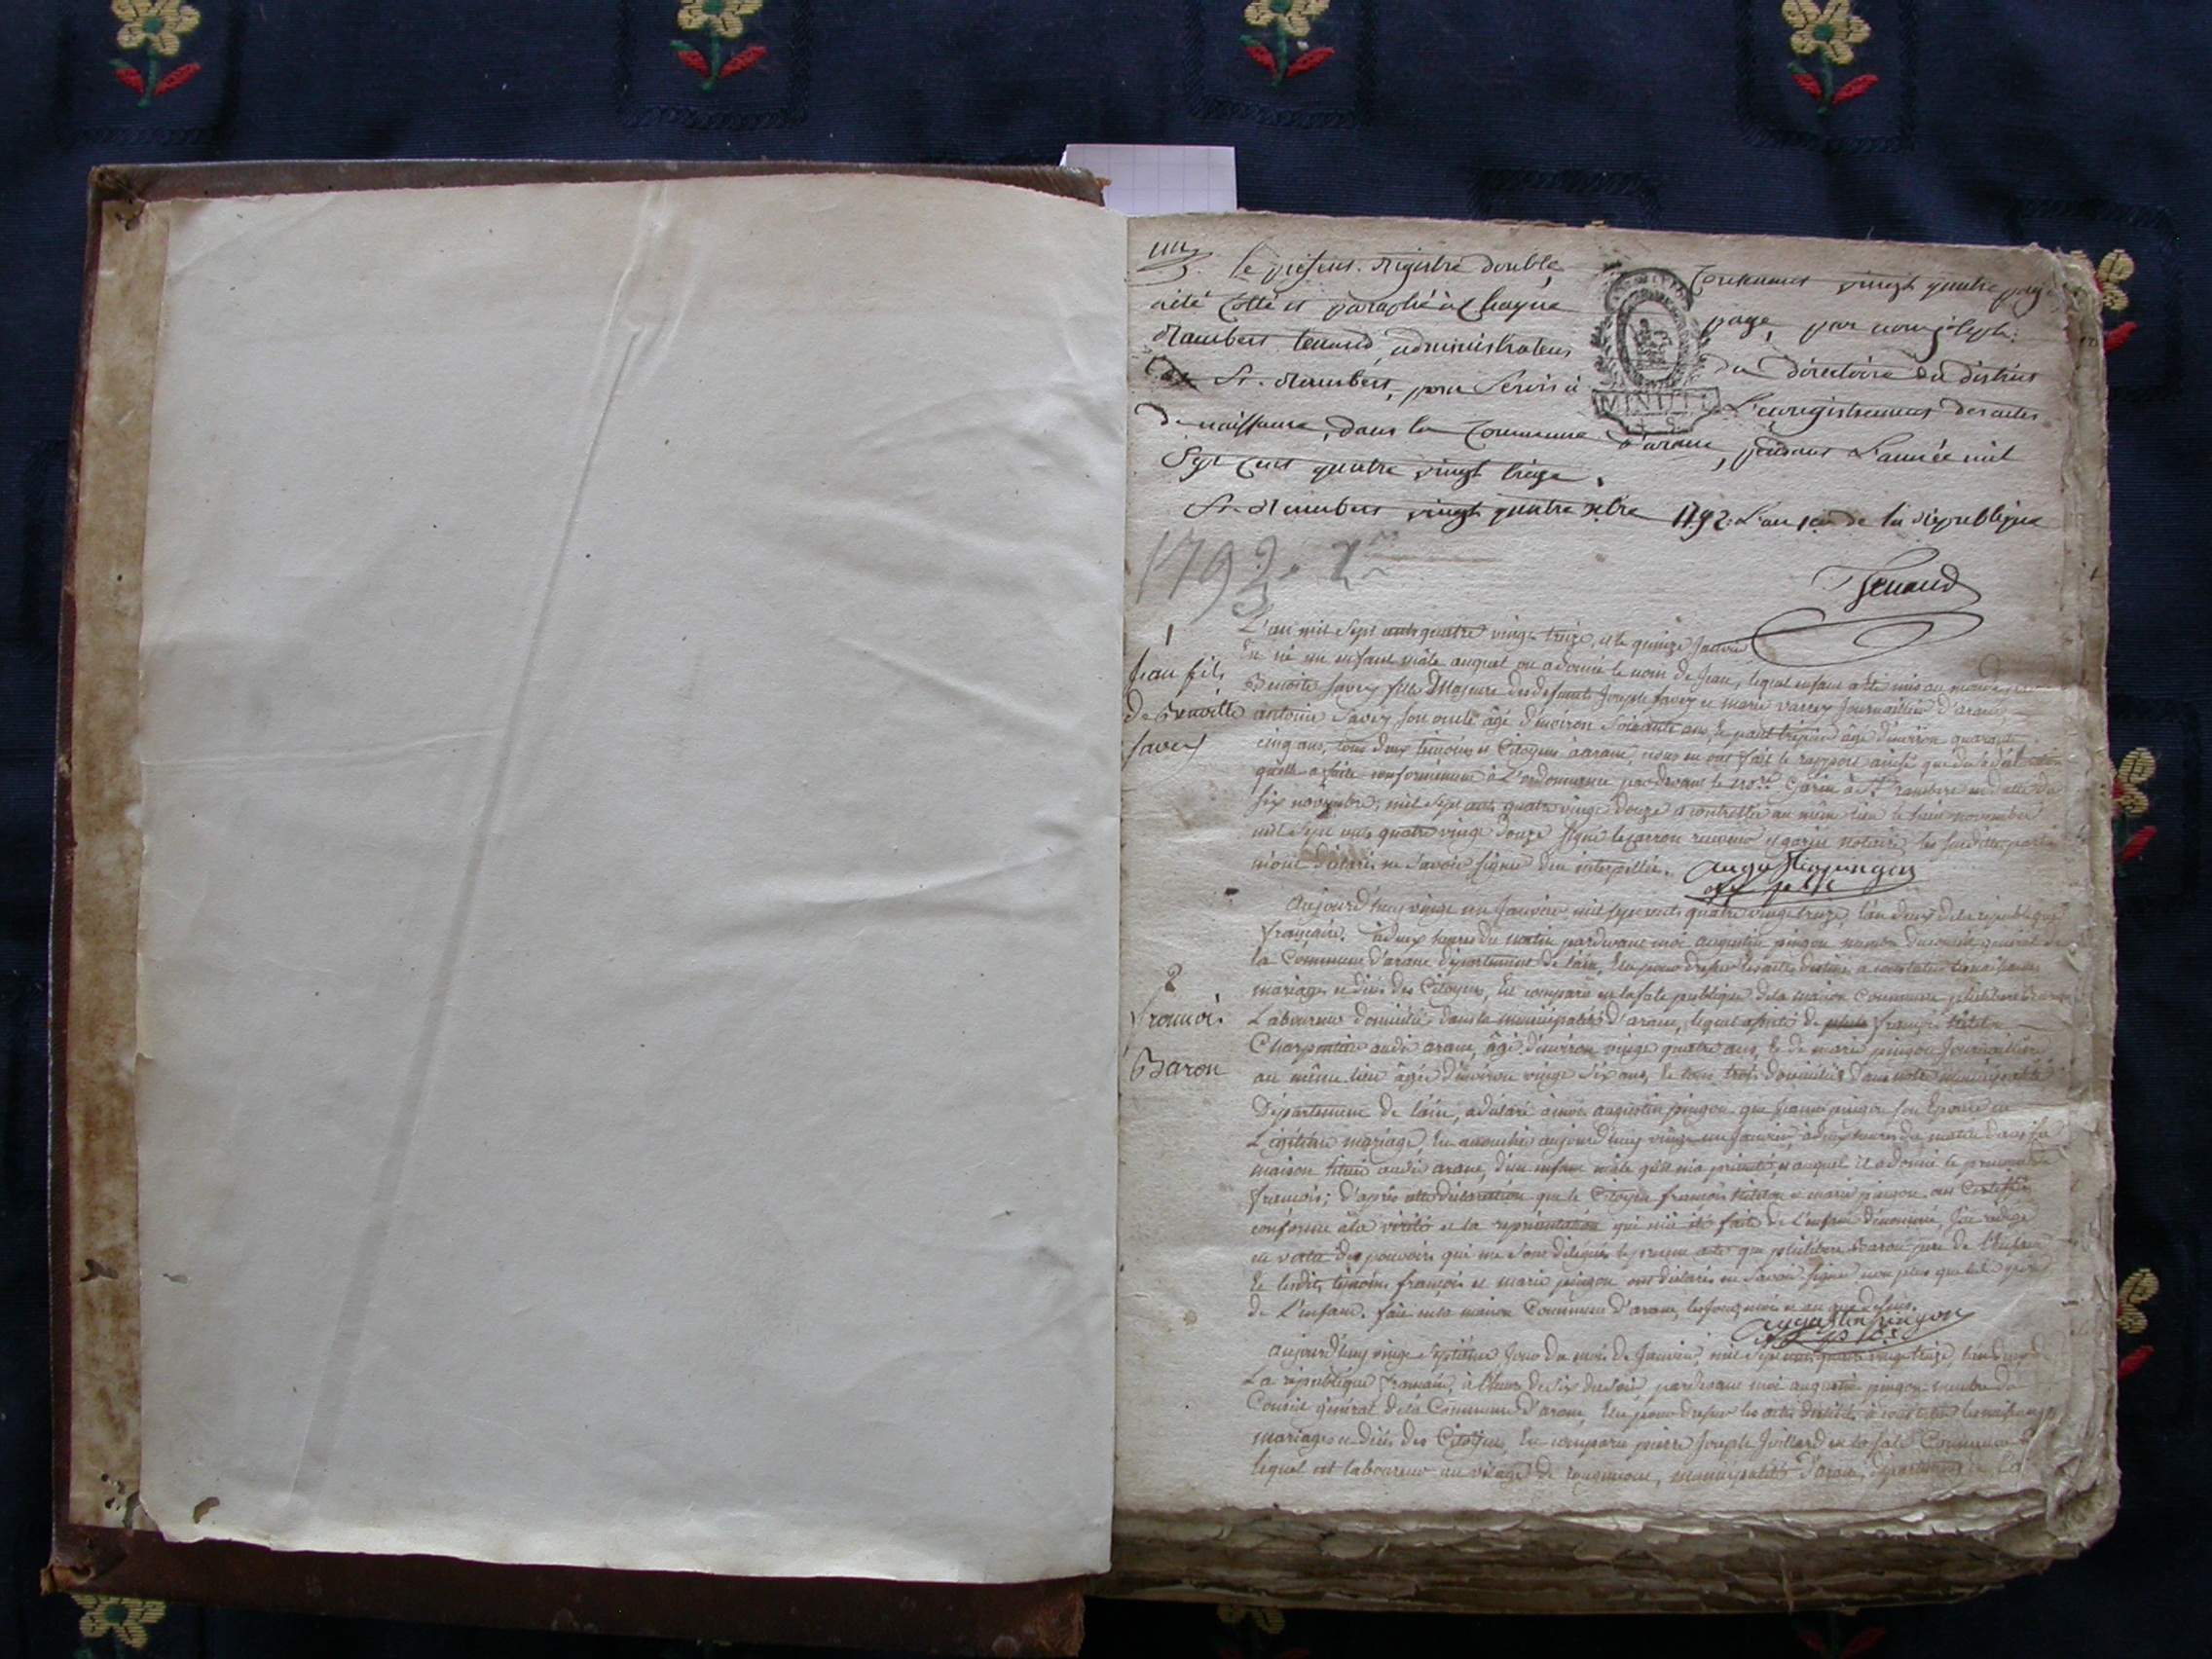 le présent registre double contenant vingt quatre page
a été cotté et paraphé à chaque page, par nous joseph
Rambert tenand, administrateur du directoire du district
de St. Rambert, pour servir à L'enregistrement des actes
de naissance, dans la Commune d'arane, pendant L'année mil
Sept cent quatre vingt treize.
St. Rambert vingt quatre xbre 1792. L'an 1er de la république
MINUTE
1793.
Tenand
1
Jean fils
de Benoitte
Savey
L'an mil sept cents quatre vingt treize, et le quinze Janvier
Est né un enfant mâle auquel on a donné le nom de Jean, lequel enfant a été mis au monde
Benoite Savey fille Majeure des defunts Joseph Savey et marie varrey Journallier d'arane,
antoine Savey son oncle âgé d'environ Soixante ans, & âgé d'environ quarante
cinq ans, tous deux témoins et Citoyens à arane, nous en ont fait le rapport ainsi que de
quelle a faite conformément à L'ordonnance pardevant le à St Rambert en datte du
six novembre, mil sept cents quatre vingt douze et controllée au même lieu le huit novembre
mil sept cents quatre vingt douze signé receveur et notaire, les susdittes
n'ont déclaré ne savoir signer d'eu interpellés.
augustin pingon
2
françois
Baron
Aujourd'huy vingt un Janvier mil sept cents quatre vingt treize, l'an deux de la republique
française. à deux heures du matin pardevant moi augustin pingon membre du conseil général de
la Commune d'arane département de l'ain, Elu pour dresser les actes destinés à constater les naissances
mariages et décès des Citoyens, Est comparu en la sale publique de la maison Commune Baron
Laboureur domicilié dans la municipalité d'arane, lequel assisté de françois
Charpentier audit arane, âgé d'environ vingt quatre ans, & de marie pingon Journallière
au même lieu âgée d'environ vingt six ans, le tous trois domiciliés dans notre municipalité
Département de l'ain, a déclaré à moi augustin pingon que pingon son Epouse en
Légitime mariage, Est accouchée aujourd'huy vingt un Janvier, à deux heures du matin dans sa
maison située audit arane, d'un enfant mâle qu'il m'a présenté, et auquel il a donné le prenom de
françois; d'après cette déclaration que le Citoyen françois & marie pingon ont Certifiée
conforme à la vérité et la représentation qui m'a été faite de L'enfant dénommé, J'ai rédigé
en vertu des pouvoirs qui me sont délégués le présent acte que Baron père de l'Enfant
& lesdits témoins françois et marie pingon ont déclaré ne savoir signer
de L'enfant. fait en la maison Commune d'arane, les jour, mois et an que dessus.
augustin pingon
Aujourd'huy vingt septième Jour du mois de Janvier, mil sept cents quatre vingt treize, l'an deux de
La république française, à l'heure de six du soir, pardevant moi augustin pingon membre du
Conseil général de la Commune d'arane, Elu pour dresser les actes destinés à constater les naissances
mariages et décès des Citoyens, Est comparu pierre Joseph Juillard en la sale Commune
lequel est laboureur au village de rougemont, municipalité d'arane, département de l'ain